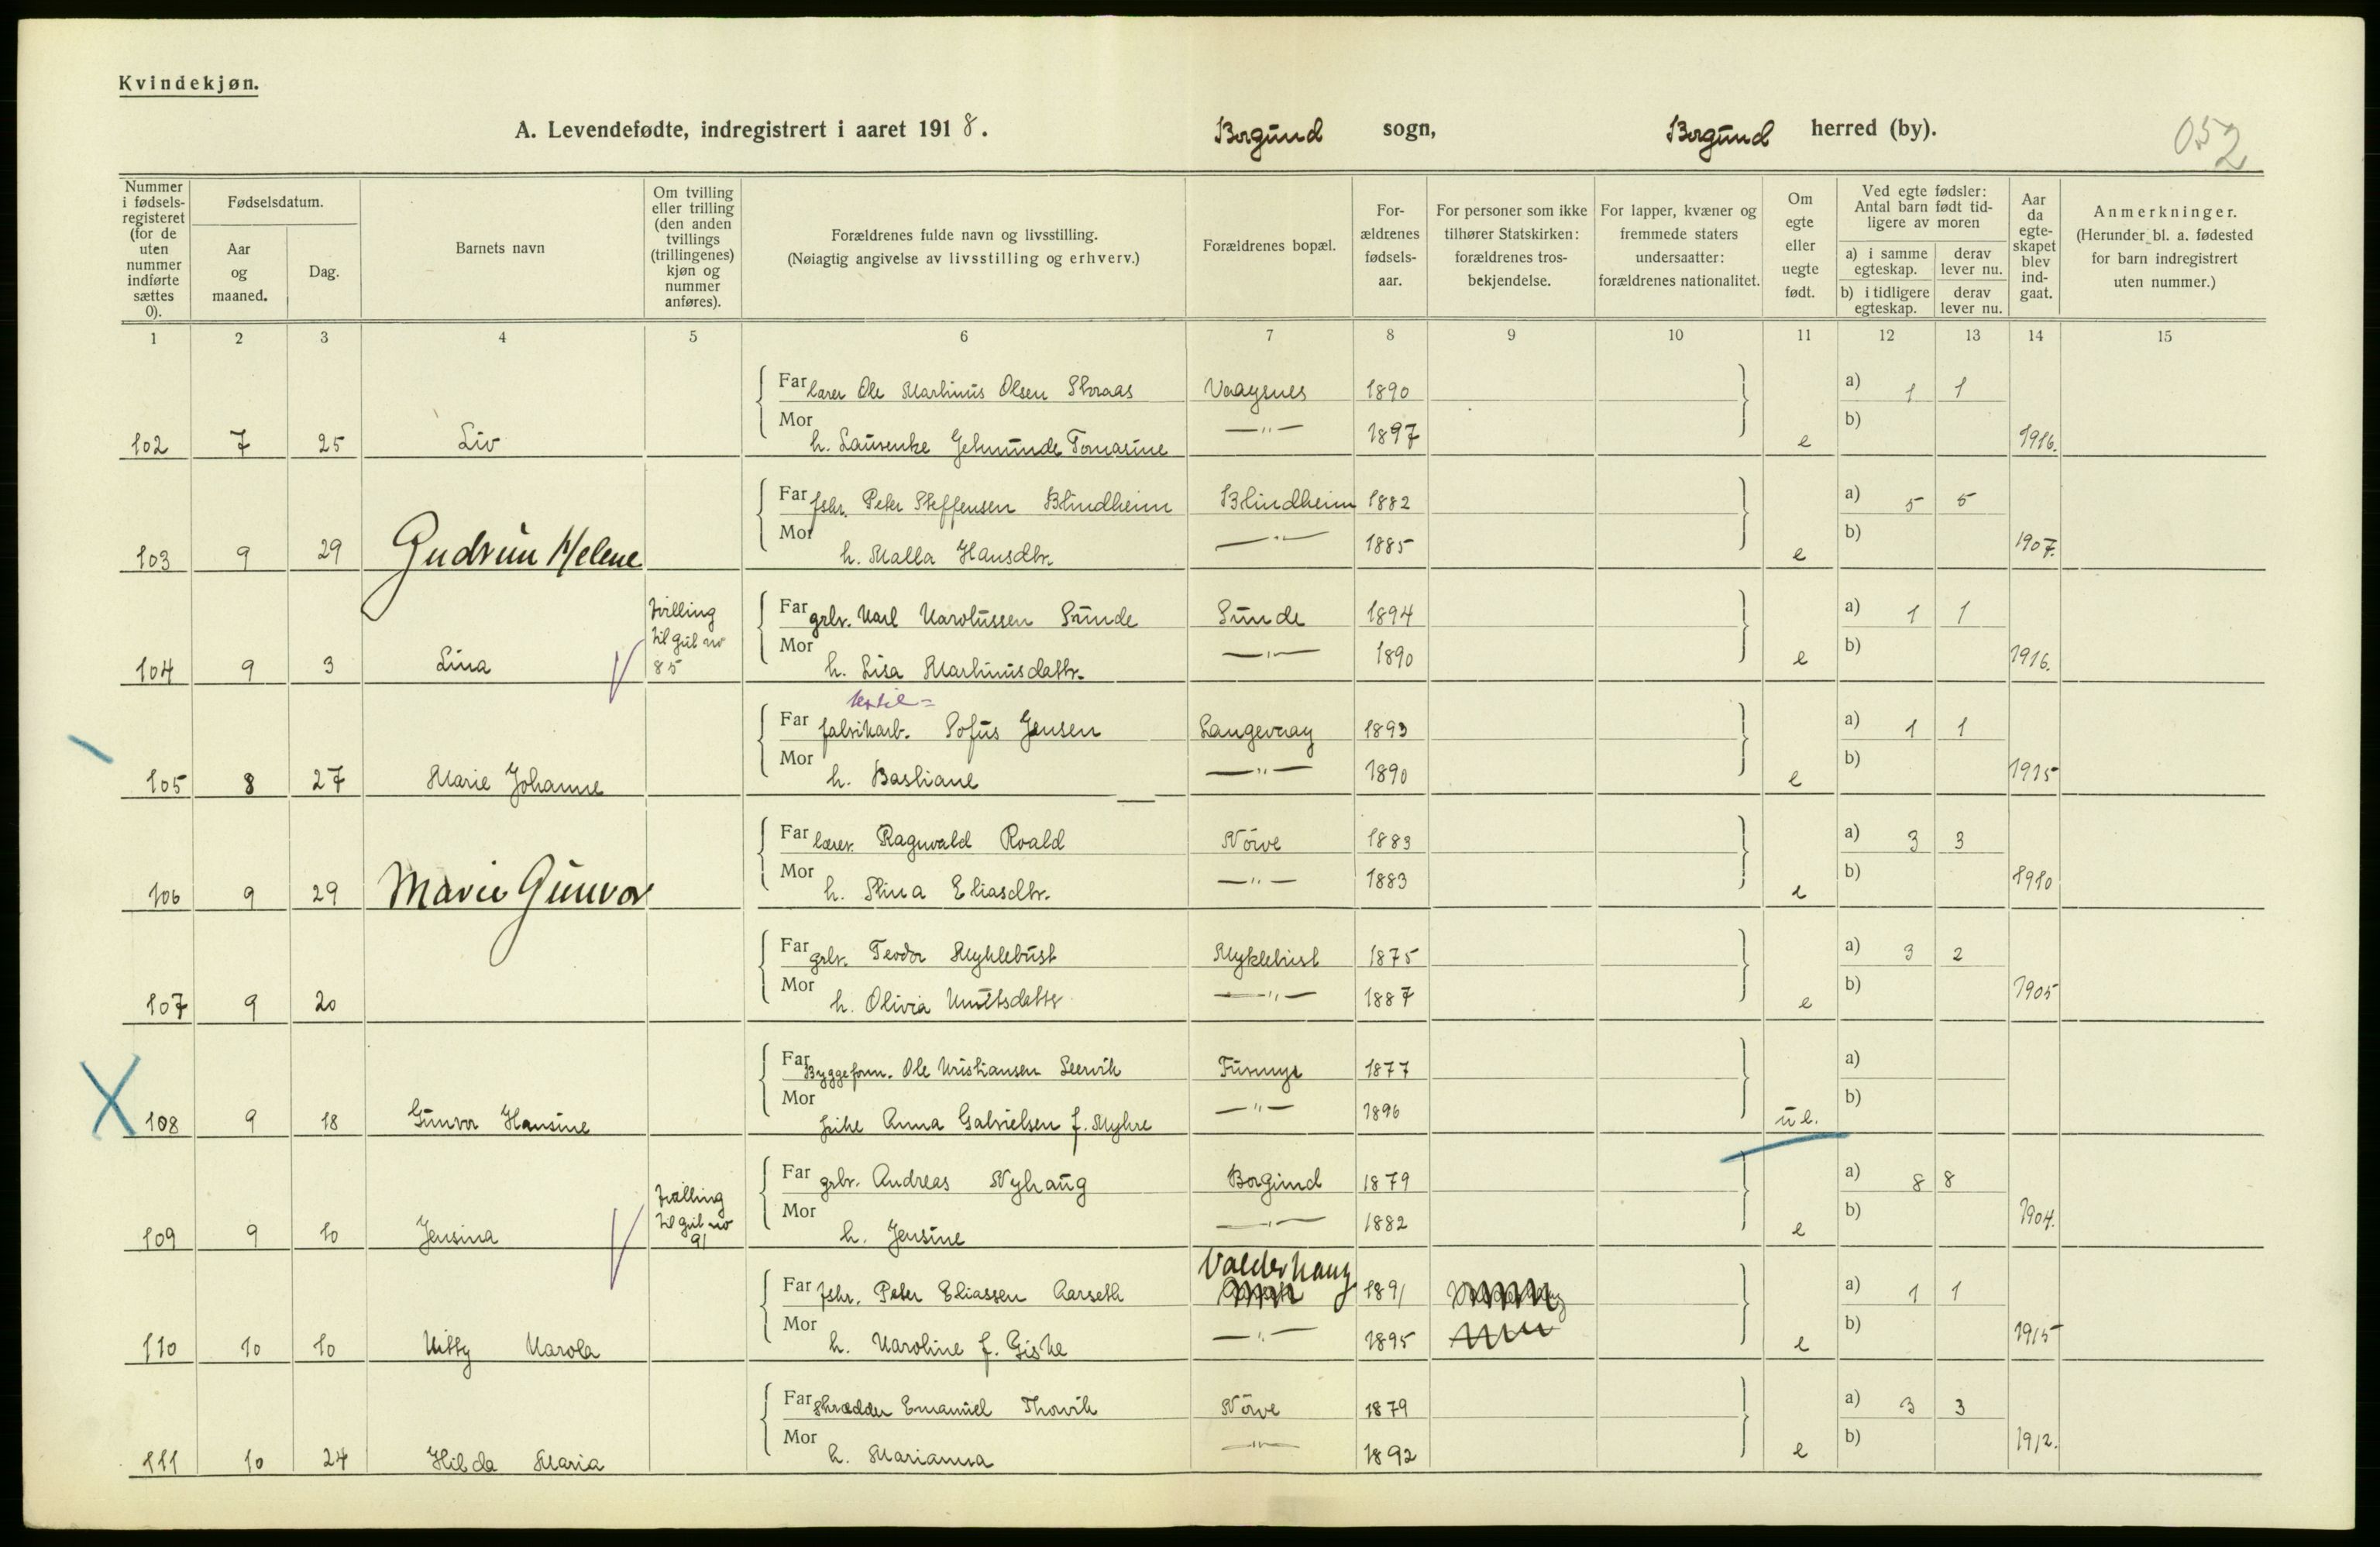 Kvindekjøn.
A. Levendefødte, indregistrert i aaret 1918. Borgund sogn, Borgund herred (by). 052
Nummer i fødsels-registeret (for de uten nummer indførte sættes 0).
Fødselsdatum.
Aar og maaned.
Dag.
Barnets navn
Om tvilling eller trilling (den anden tvillings (trillingenes) kjøn og nummer anføres).
Forældrenes fulde navn og livsstilling.
(Nøiagtig angivelse av livsstilling og erhverv.)
Forældrenes bopæl.
For-ældrenes fødsels-aar.
For personer som ikke tilhører Statskirken: forældrenes tros-bekjendelse.
For lapper, kvæner og fremmede staters undersaatter: forældrenes nationalitet.
Om egte eller uegte født.
Ved egte fødsler: Antal barn født tid-ligere av moren
a) i samme egteskap. derav lever nu.
b) i tidligere egteskap. derav lever nu.
Aar da egte-skapet blev ind-gaat.
Anmerkninger.
(Herunder bl. a. fødested for barn indregistrert uten nummer.)
1 2 3 4 5 6 7 8 9 10 11 12 13 14 15
Far lærer Ole Martinus Olsen Skraas Vaagsnes 1890 a) 1 1
102 7 25 Liv Mor h. Laurenke Tomasine —"— 1897 e b) 1916.
Far fskr. Peter Steffensen Blindheim Blindheim 1882 a) 5 5
103 9 29 Gudrun Helene Mor h. Malla Hansdtr. —"— 1885 e b) 1907.
Far grbr. Karl Karolussen Sunde Sunde 1894 a) 1 1
104 9 3 Lina tvilling til gut no 85 Mor h. Lisa Martinusdattr. —"— 1890 e b) 1916.
tekstil=
Far fabrikarb. Sofus Jensen Langevaag 1893 a) 1 1
105 8 27 Marie Johanne Mor h. Bastiane —"— 1890 e b) 1915
Far lærer Ragnvald Roald Nörve 1883 a) 3 3
106 9 29 Marie Gunvor Mor h. Stina Eliasdtr. —"— 1883 e b) 1910
Far grbr. Teodor Myklebust Myklebust 1875 a) 3 2
107 9 20 Mor h. Olivia Knutsdattr —"— 1887 e b) 1905
Far Byggeform. Ole Kristiansen Leervik 1877 a)
108 9 18 Gunvor Hansine Mor Anna Gabrielsen f. Myhre —"— 1896 ue. b)
Far grbr. Andreas Nyhaug Borgund 1879 a) 8 8
109 9 10 Jensina tvilling til gut no 91 Mor h. Jensine —"— 1882 e b) 1904.
Valderhaug
Far fskr. Peter Eliassen Aarseth 1891 a) 1 1
110 10 10 Kitty Karola Mor h. Karoline f. Giske —"— 1895 e b) 1915
Far skrædder Emanuel Thorvik Nörve 1879 a) 3 3
111 10 24 Hilda Maria Mor h. Marianna —"— 1892 e b) 1912.